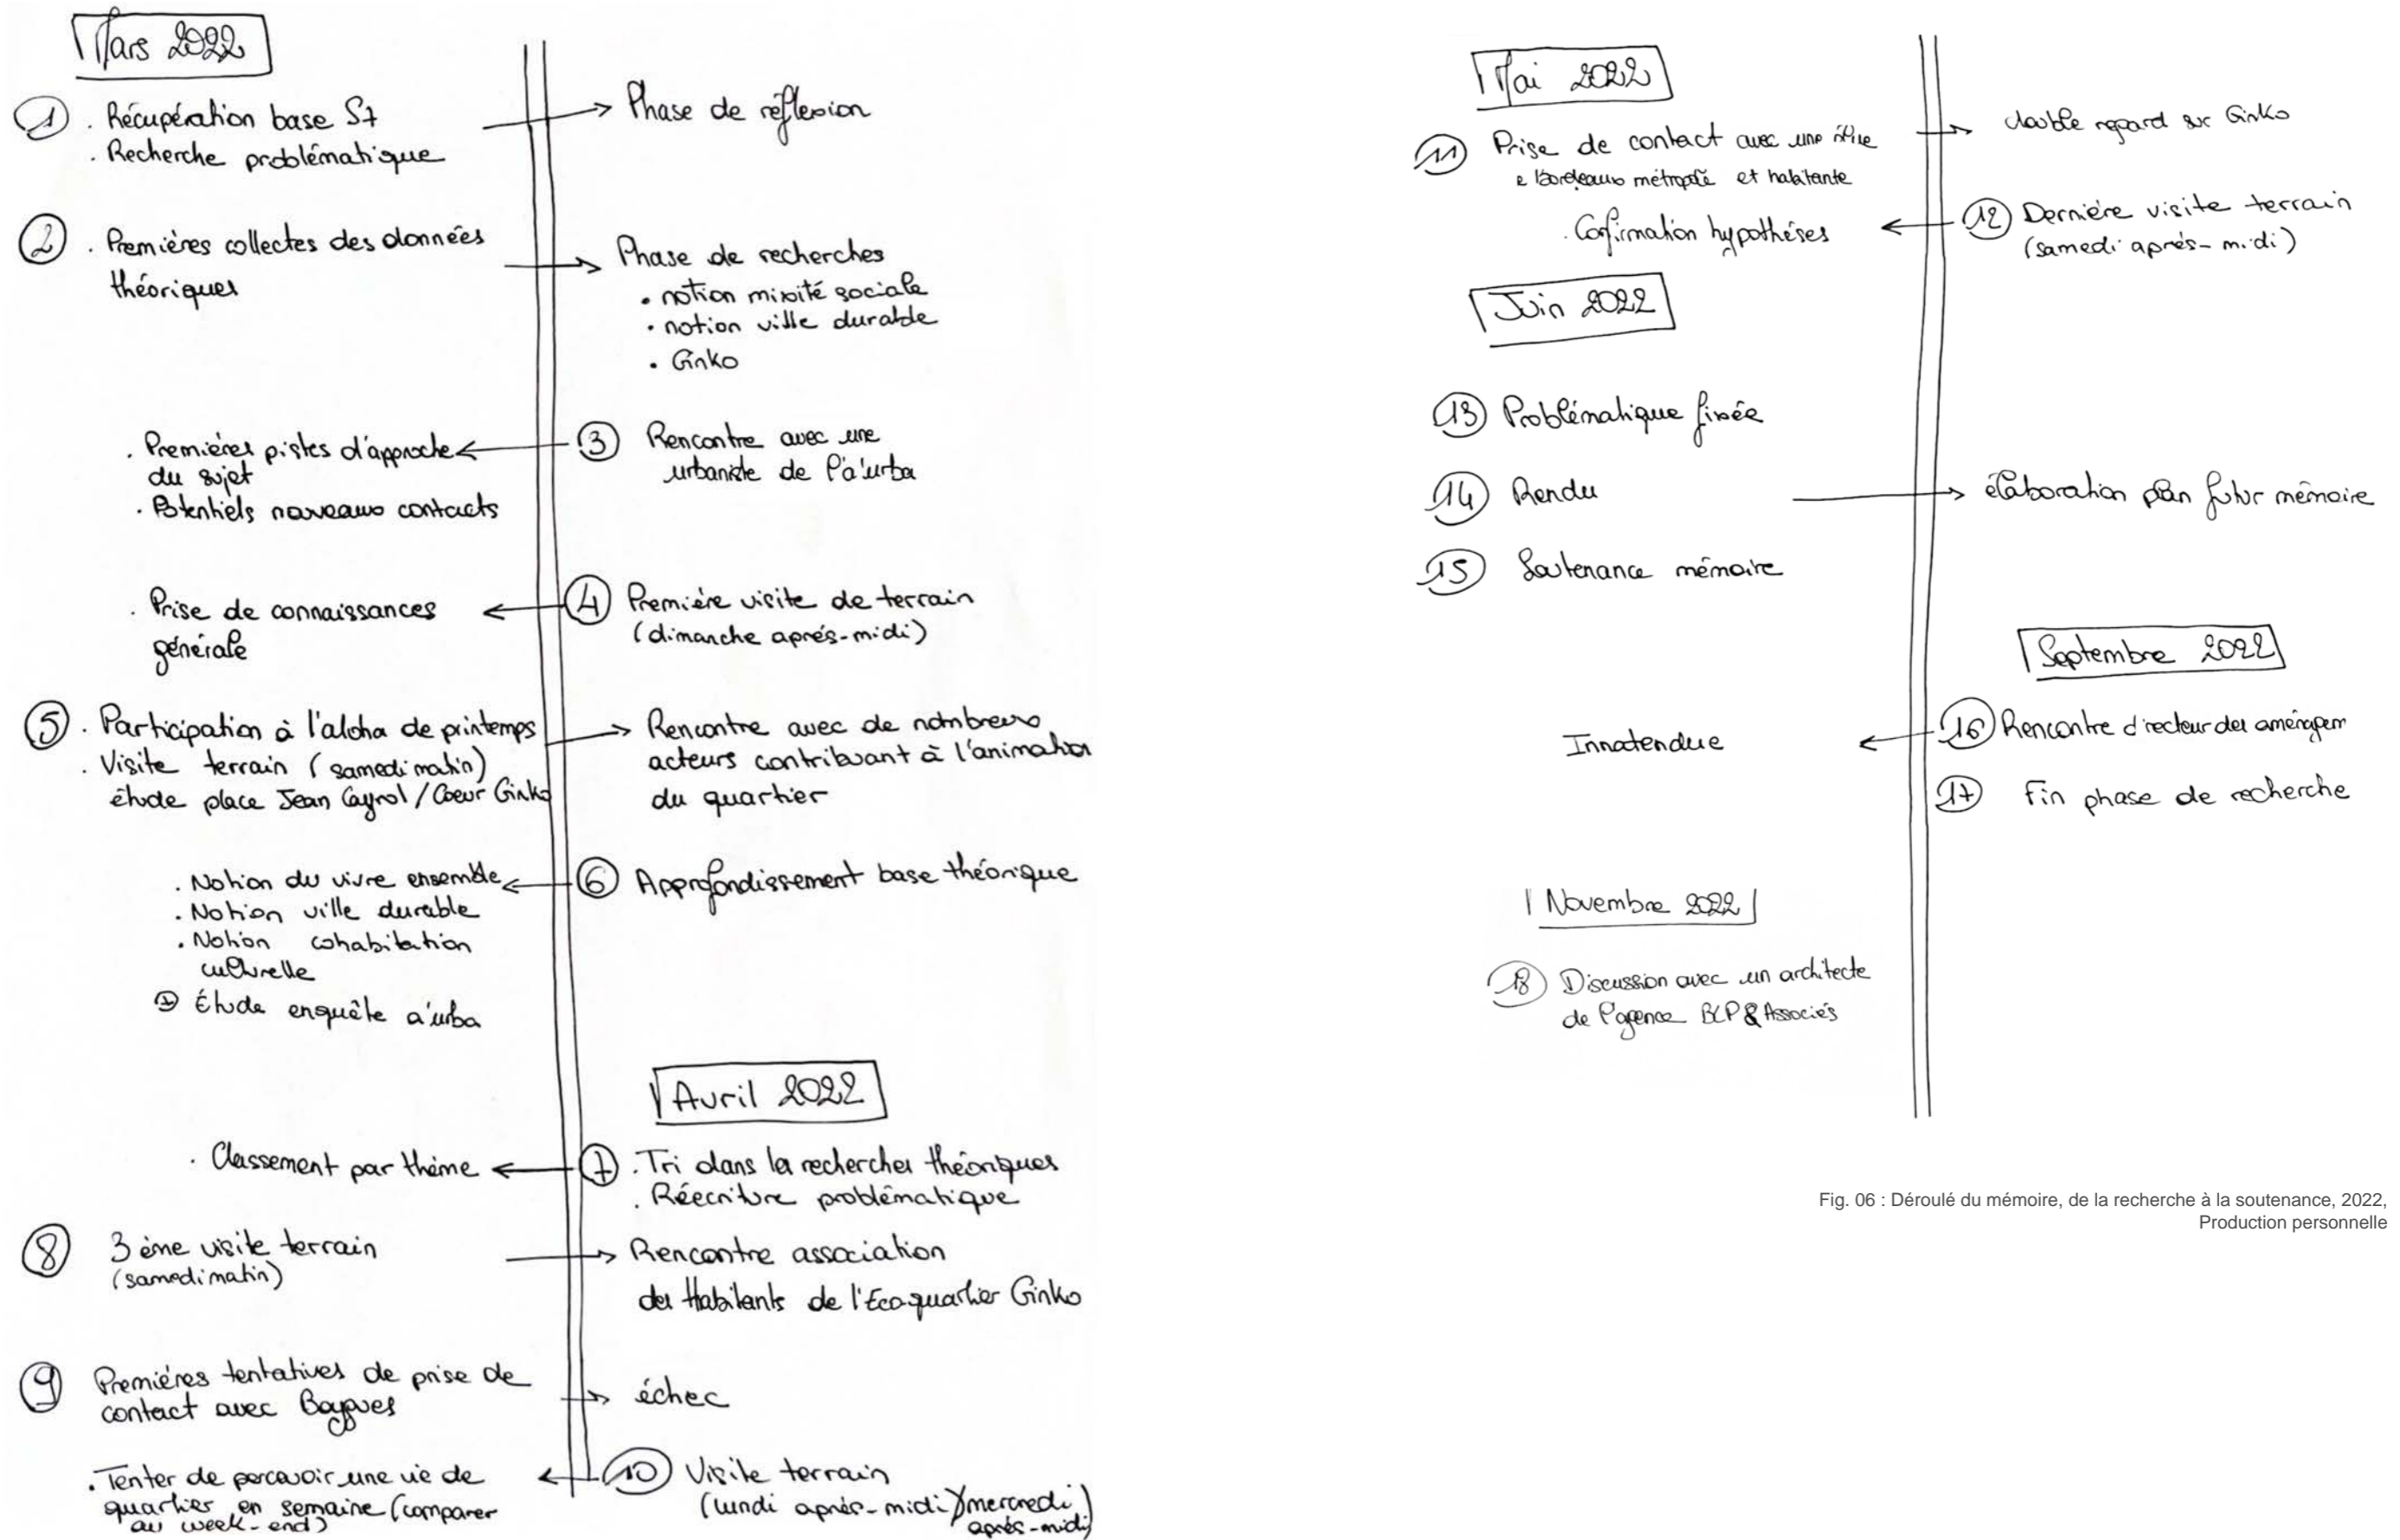 Mars 2022
① . Récupération base S7
. Recherche problématique
Phase de réflexion
② . Premières collectes des données
théoriques
Phase de recherches
• notion mixité sociale
• notion ville durable
• Ginko
③ Rencontre avec une
urbaniste de l'a'urba
. Premières pistes d'approche
du sujet
. Potentiels nouveaux contacts
④ Première visite de terrain
(dimanche après-midi)
. Prise de connaissances
générale
⑤ . Participation à l'aloha de printemps
. Visite terrain (samedi matin)
étude place Jean Cayrol / Coeur Ginko
Rencontre avec de nombreux
acteurs contribuant à l'animation
du quartier
⑥ Approfondissement base théorique
. Notion du vivre ensemble
. Notion ville durable
. Notion cohabitation
culturelle
⊕ Étude enquête a'urba
Avril 2022
⑦ . Tri dans la recherches théoriques
. Réecriture problématique
. Classement par thème
⑧ 3ème visite terrain
(samedi matin)
Rencontre association
des Habitants de l'Ecoquartier Ginko
⑨ Premières tentatives de prise de
contact avec Bouygues
échec
⑩ Visite terrain
(lundi après-midi) (mercredi
après-midi)
. Tenter de percevoir une vie de
quartier en semaine (comparer
au week-end)
Mai 2022
⑪ Prise de contact avec une élue
Bordeaux métropole et habitante
double regard sur Ginko
⑫ Dernière visite terrain
(samedi après-midi)
. Confirmation hypothèses
Juin 2022
⑬ Problématique fixée
⑭ Rendu
élaboration plan futur mémoire
⑮ Soutenance mémoire
Septembre 2022
⑯ Rencontre directeur des aménagem
Innatendue
⑰ Fin phase de recherche
Novembre 2022
⑱ Discussion avec un architecte
de l'agence BLP & Associés
Fig. 06 : Déroulé du mémoire, de la recherche à la soutenance, 2022,
Production personnelle